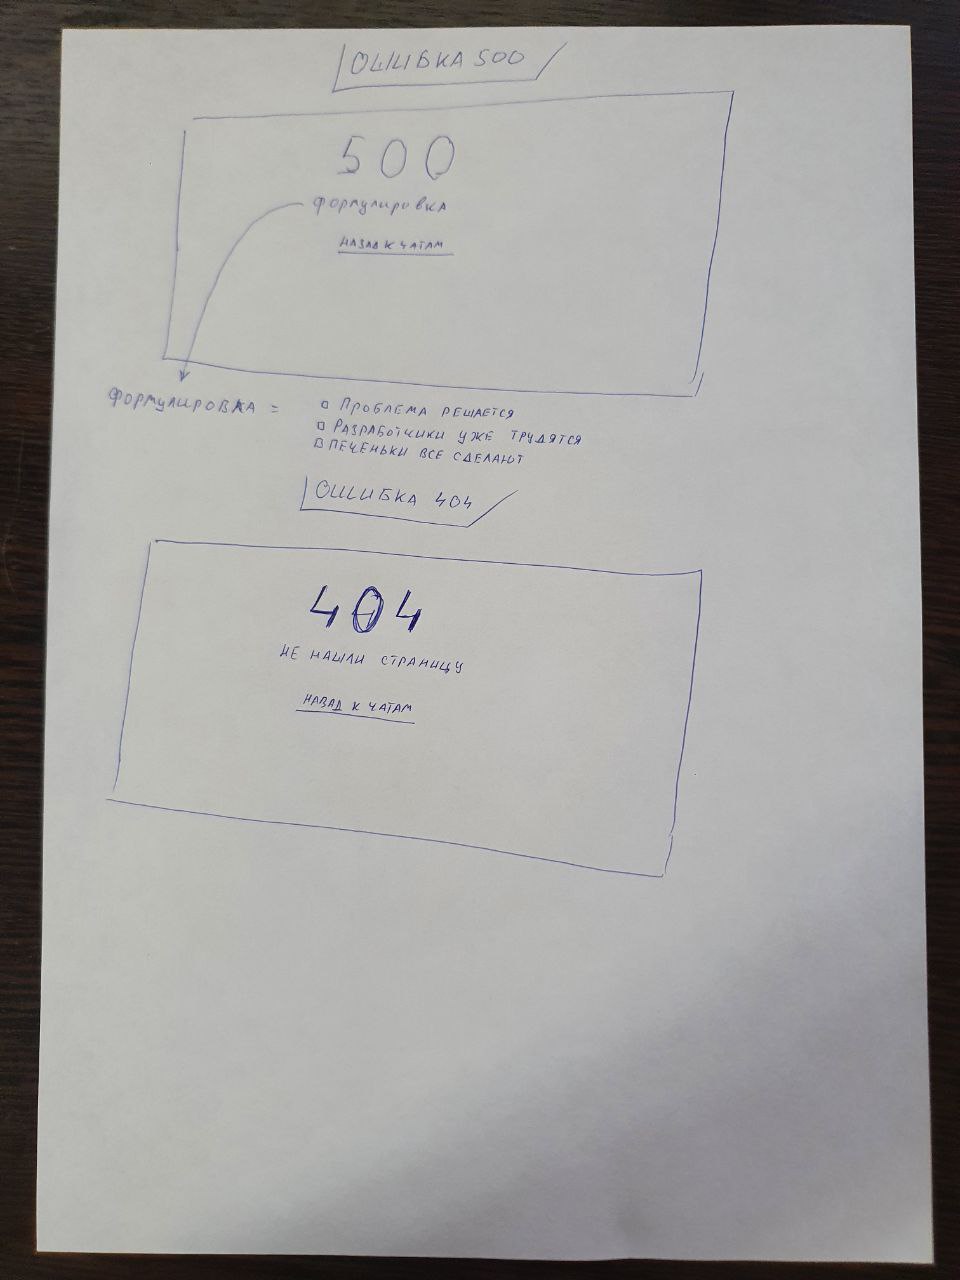 ОШИБКА 500
500
формулировка
НАЗАД К ЧАТАМ
ФОРМУЛИРОВКА =
ПРОБЛЕМА РЕШАЕТСЯ
РАЗРАБОТЧИКИ УЖЕ ТРУДЯТСЯ
ПЕЧЕНЬКИ ВСЕ СДЕЛАЮТ
ОШИБКА 404
404
НЕ НАШЛИ СТРАНИЦУ
НАЗАД К ЧАТАМ